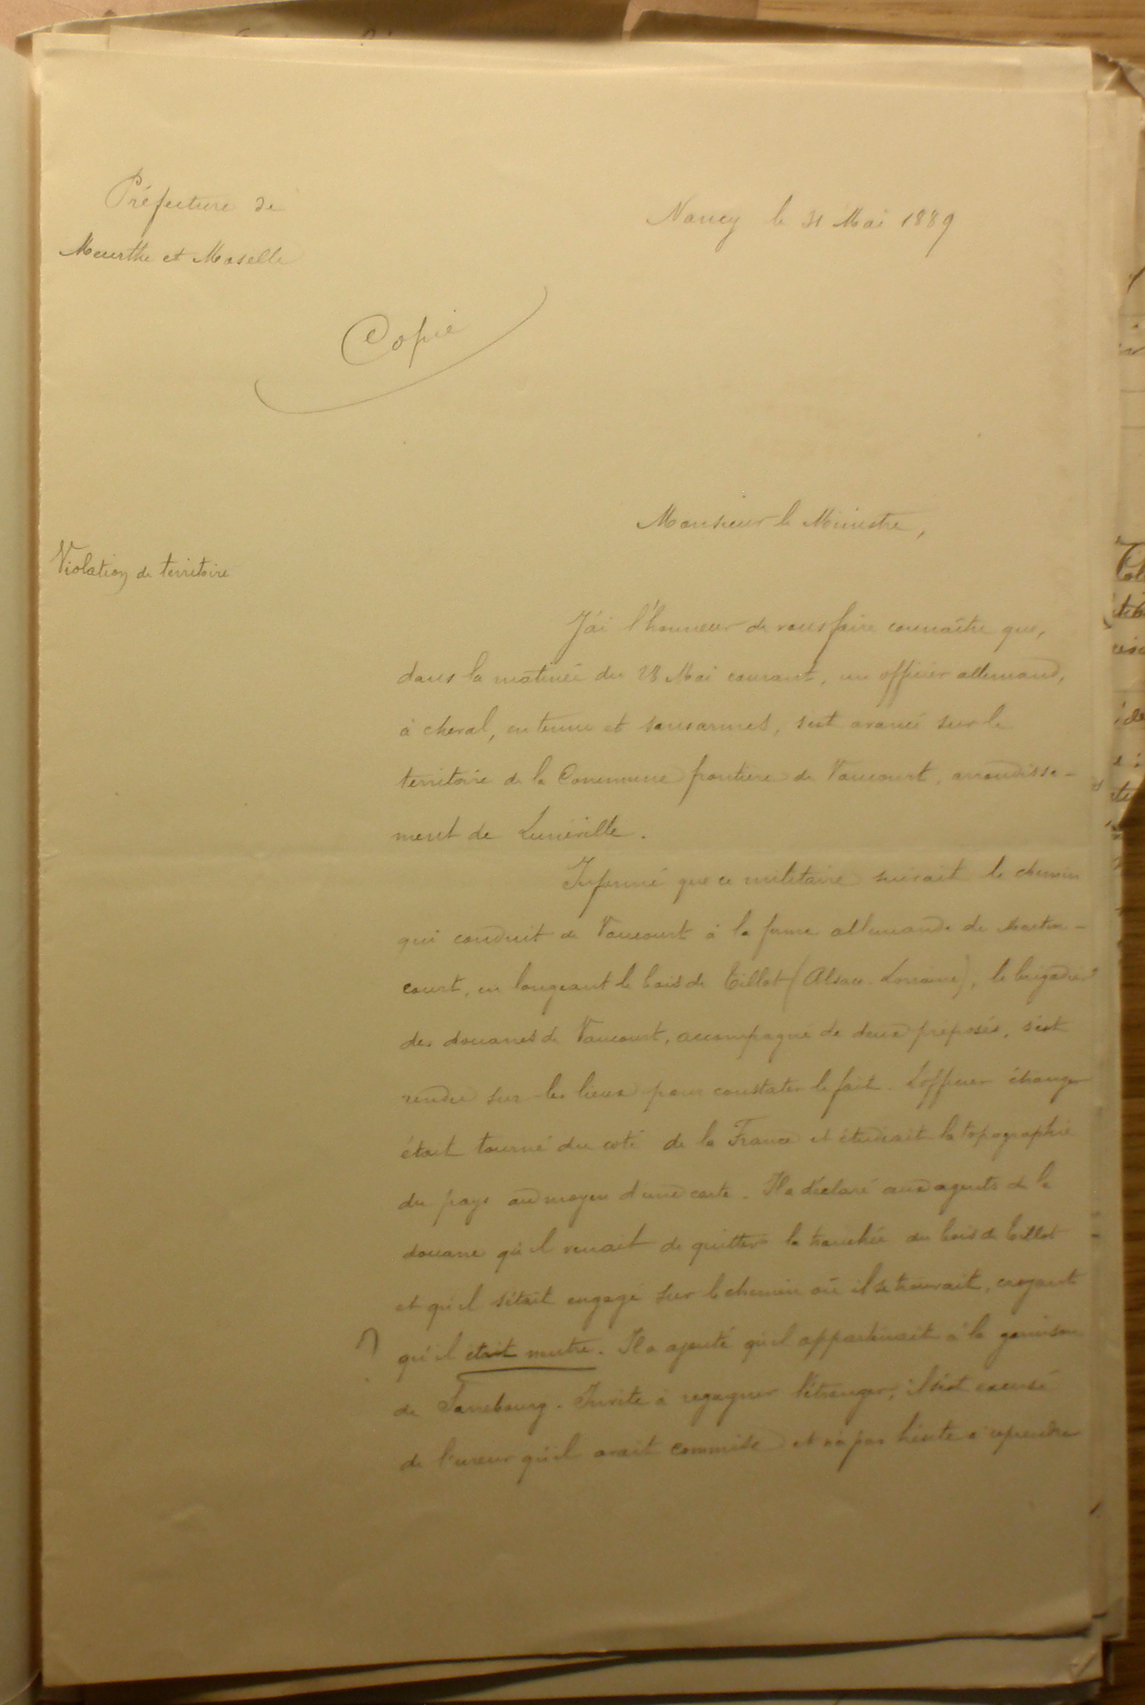 Préfecture de
Meurthe et Moselle
Nancy le 31 Mai 1889
Copie
Monsieur le Ministre,
Violation de territoire
J'ai l'honneur de vous faire connaître que,
dans la matinée du 28 Mai courant, un officier allemand,
à cheval, en tenue et sans armes, s'est avancé sur le
territoire de la Commune frontière de Vaucourt, arrondisse-
ment de Lunéville.
Informé que ce militaire suivait le chemin
qui conduit de Vaucourt à la ferme allemande de Martin-
court, en longeant le bois du Tillot (Alsace Lorraine), le brigadier
des douanes de Vaucourt, accompagné de deux préposés, s'est
rendu sur les lieux pour constater le fait. L'officier étranger
était tourné du côté de la France et étudiait la topographie
du pays au moyen d'une carte. Il a déclaré aux agents de la
douane qu'il venait de quitter la tranchée du bois du Tillot
et qu'il s'était engagé sur le chemin où il se trouvait, croyant
? qu'il était neutre. Il a ajouté qu'il appartenait à la garnison
de Sarrebourg. Invité à regagner l'étranger, il s'est excusé
de l'erreur qu'il avait commise et n'a pas hésité à reprendre